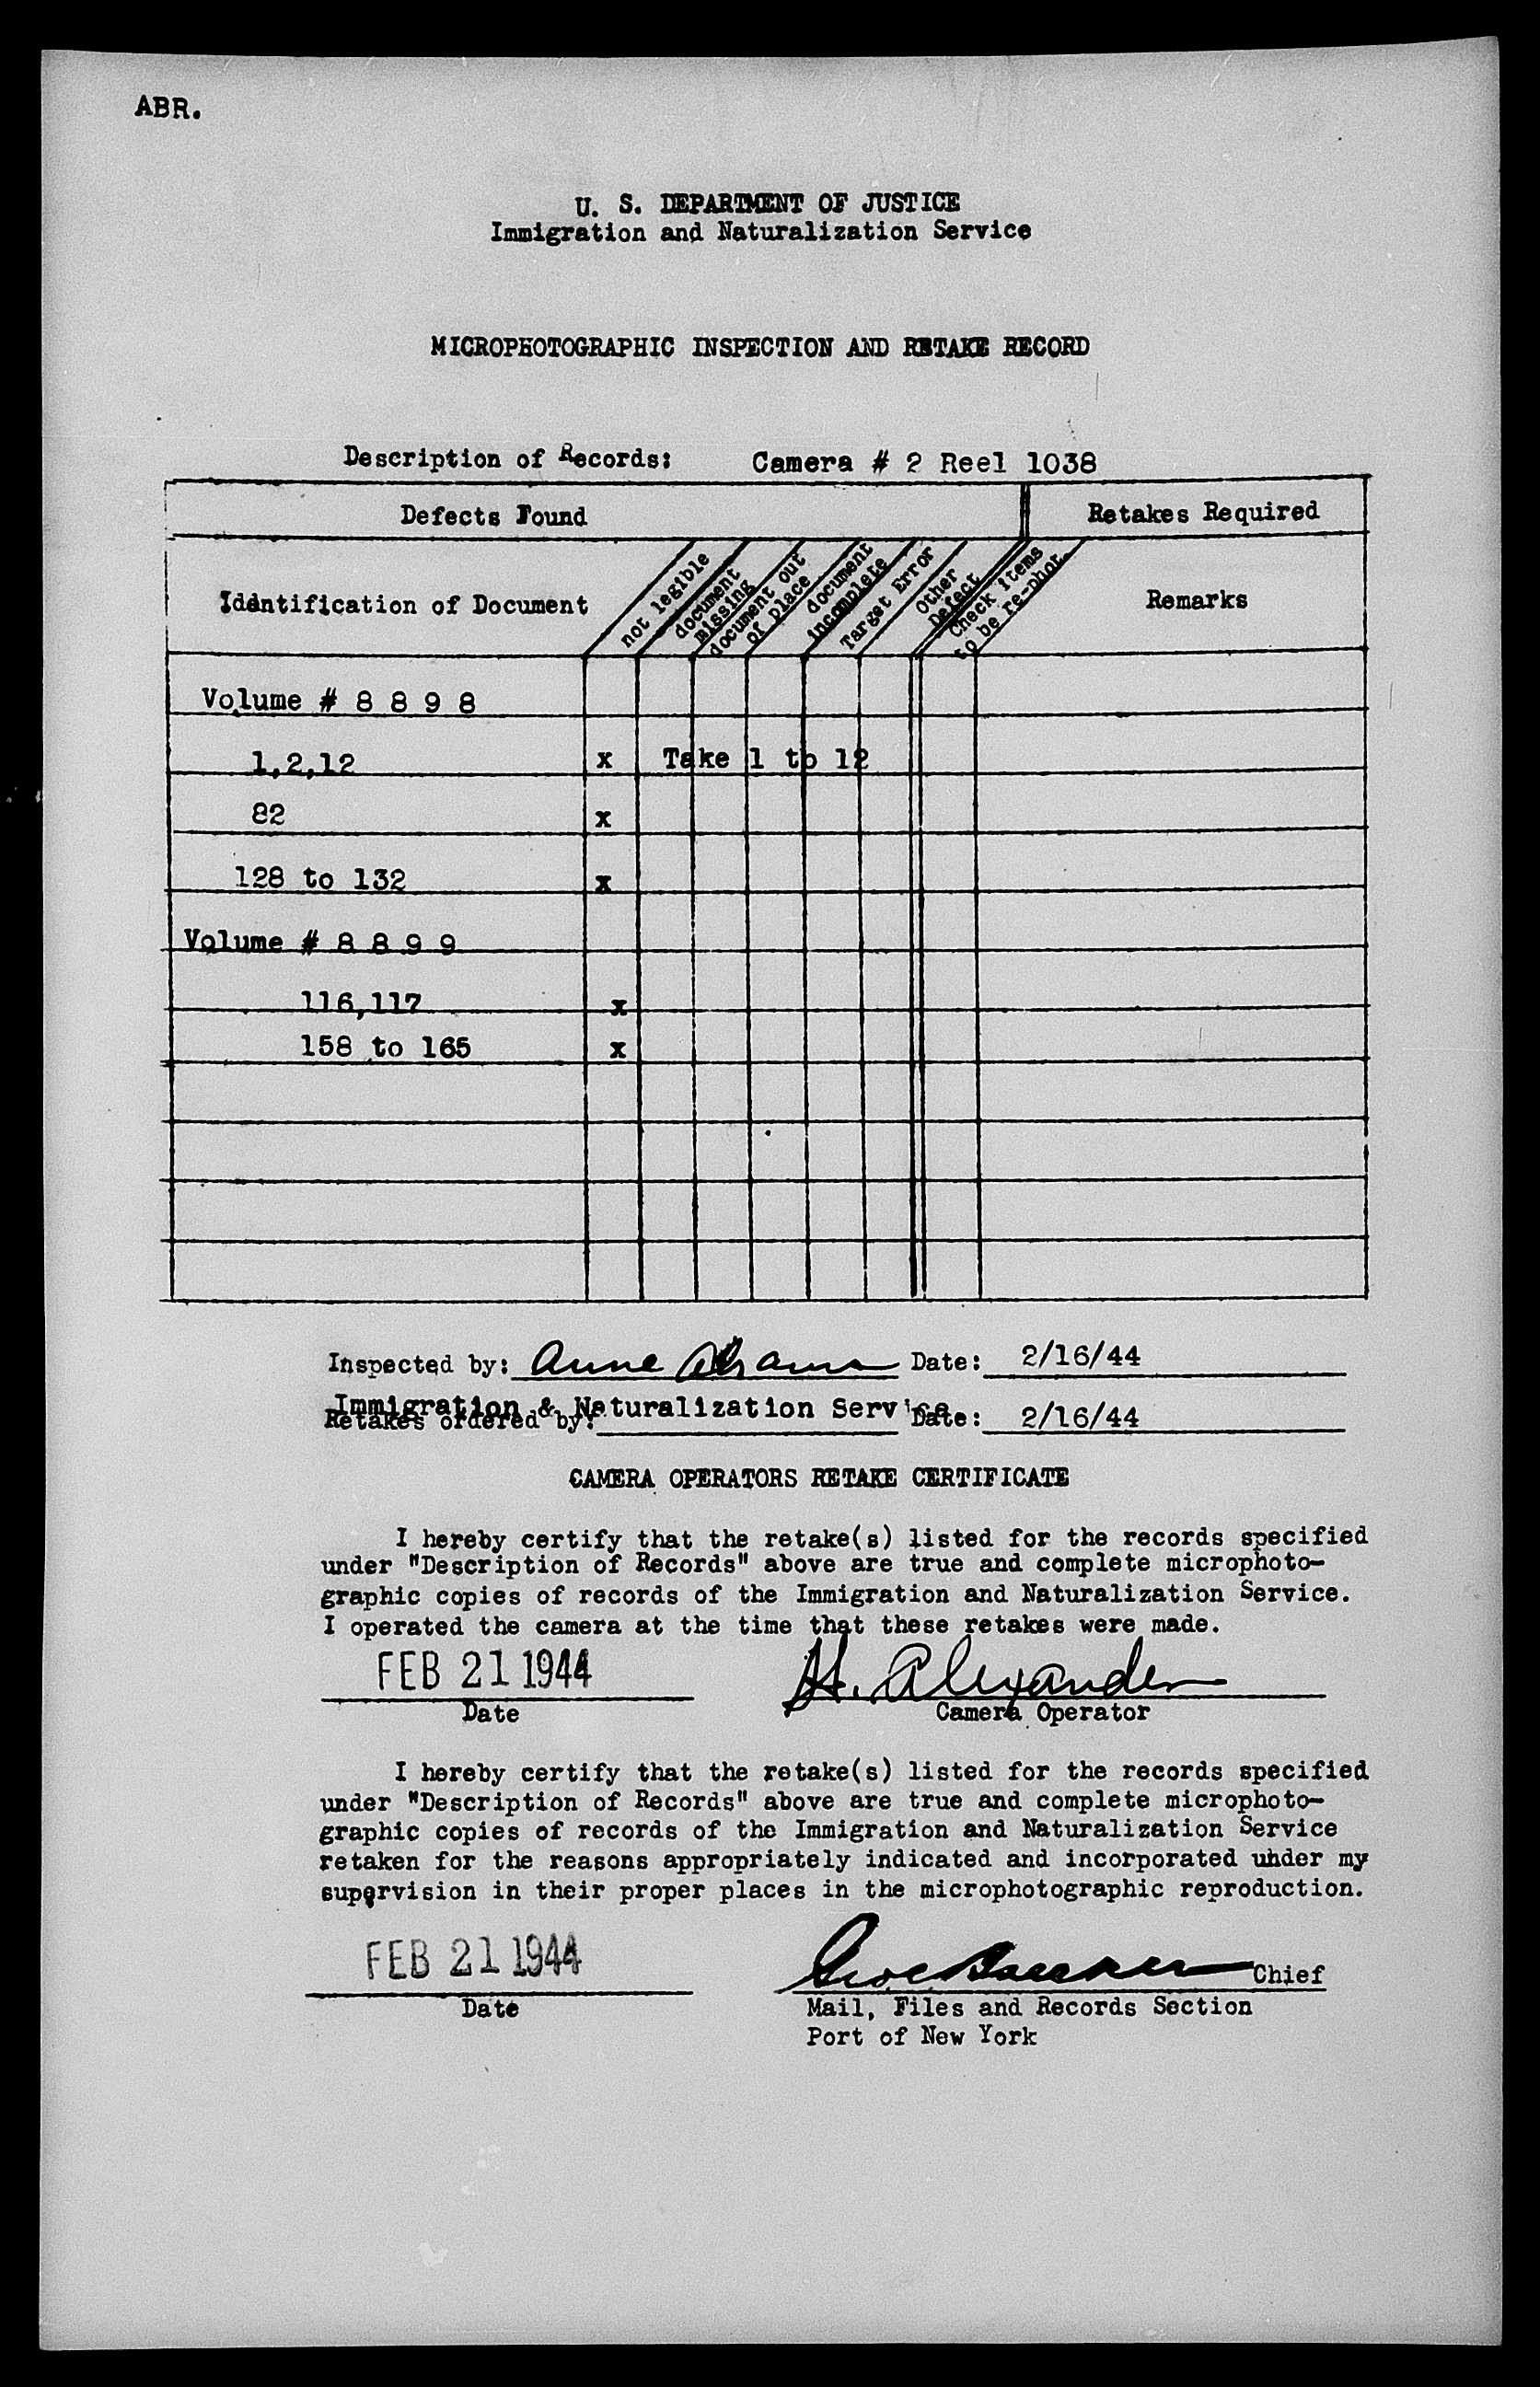 ABR.
U. S. DEPARTMENT OF JUSTICE
Immigration and Naturalization Service
MICROPHOTOGRAPHIC INSPECTION AND RETAKE RECORD
Description of Records: Camera # 2 Reel 1038
Defects Found Retakes Required
Identification of Document
not legible
document
missing
document out
of place
document
incomplete
Target Error
Other
Defect
Check items
to be re-phot.
Remarks
Volume # 8 8 9 8
1,2,12 x Take 1 to 12
82 x
128 to 132 x
Volume # 8 8 9 9
116,117 x
158 to 165 x
Inspected by: Anne Abrams Date: 2/16/44
Immigration & Naturalization Service
Retakes ordered by: Date: 2/16/44
CAMERA OPERATORS RETAKE CERTIFICATE
I hereby certify that the retake(s) listed for the records specified
under "Description of Records" above are true and complete microphoto-
graphic copies of records of the Immigration and Naturalization Service.
I operated the camera at the time that these retakes were made.
FEB 21 1944 H. Alexander
Date Camera Operator
I hereby certify that the retake(s) listed for the records specified
under "Description of Records" above are true and complete microphoto-
graphic copies of records of the Immigration and Naturalization Service
retaken for the reasons appropriately indicated and incorporated uhder my
supervision in their proper places in the microphotographic reproduction.
FEB 21 1944 Chief
Date Mail, Files and Records Section
Port of New York